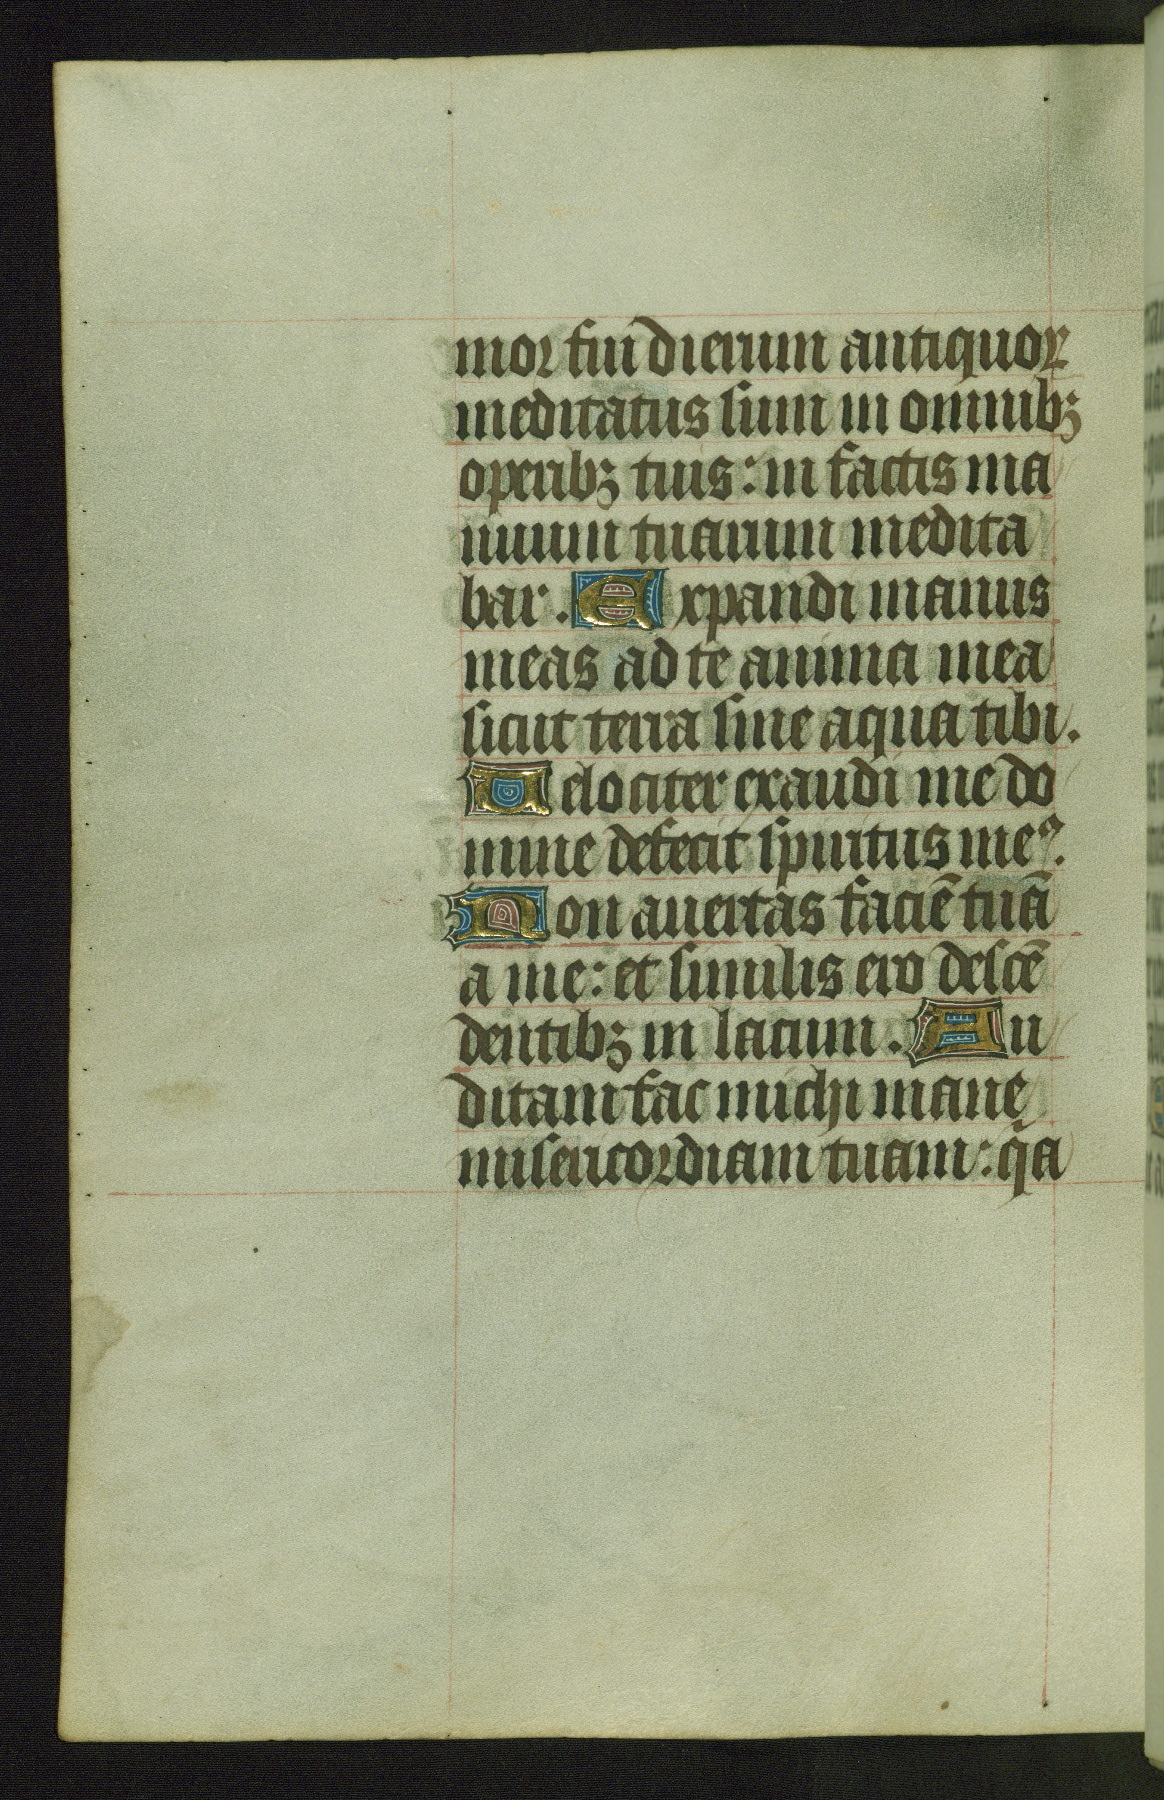 mor fui dierum antiquoꝝ
meditatus sum in omnibꝫ
operibꝫ tuis: in factis ma
nuum tuarum medita
bar. Expandi manus
meas ad te anima mea
sicut terra sine aqua tibi.
Velociter exaudi me do
mine defecit spiritus meꝰ.
Non auertas faciē tuā
a me: et similis ero descē
dentibꝫ in lacum. Au
ditam fac michi mane
misericordiam tuam: q̄a